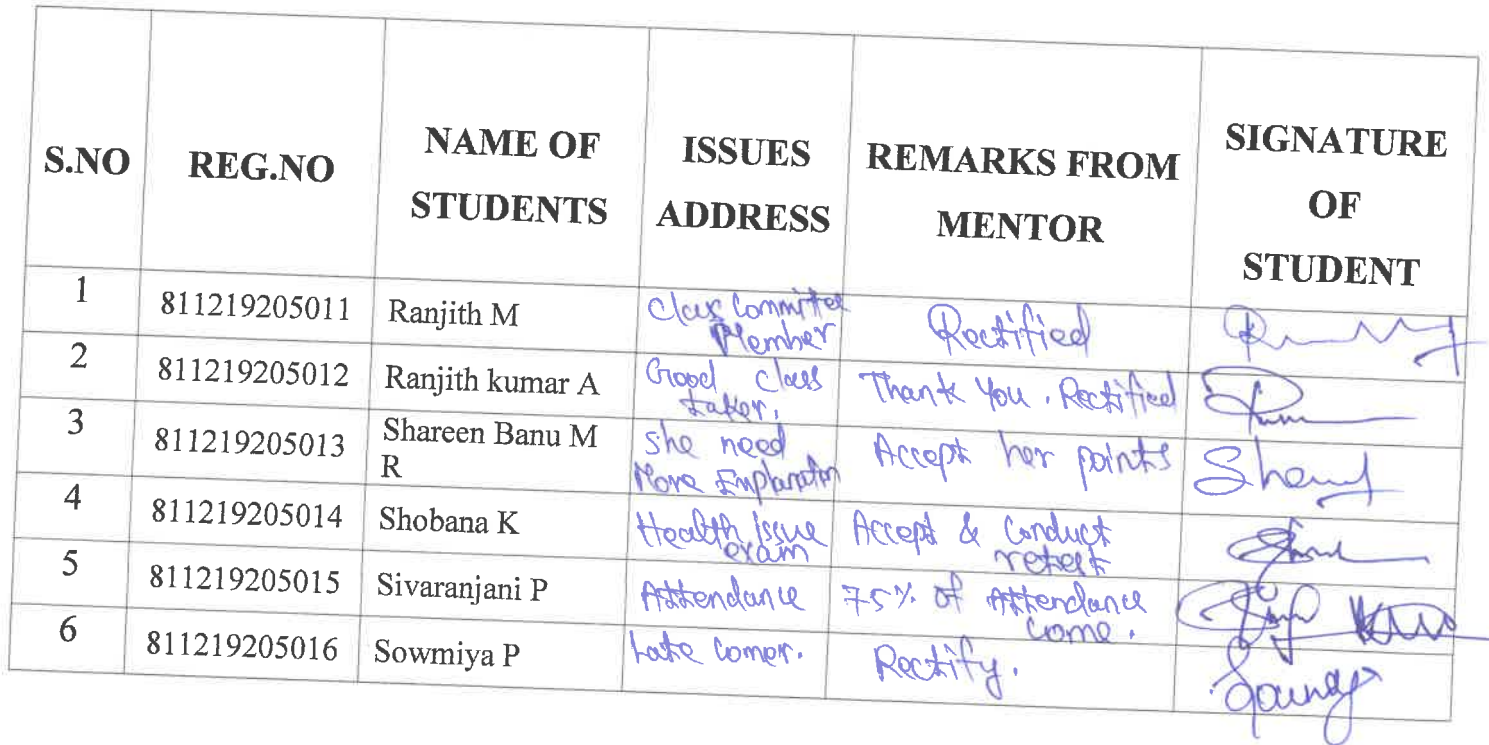 S.NO REG.NO NAME OF STUDENTS ISSUES ADDRESS REMARKS FROM MENTOR SIGNATURE OF STUDENT
1 811219205011 Ranjith M Class Committee Member Rectified
2 811219205012 Ranjith kumar A Good class taker. Thank You . Rectified
3 811219205013 Shareen Banu M R She need More Explanation Accept her points
4 811219205014 Shobana K Health Issue exam Accept & Conduct retest
5 811219205015 Sivaranjani P Attendance 75% of Attendance come.
6 811219205016 Sowmiya P Late comer. Rectify.